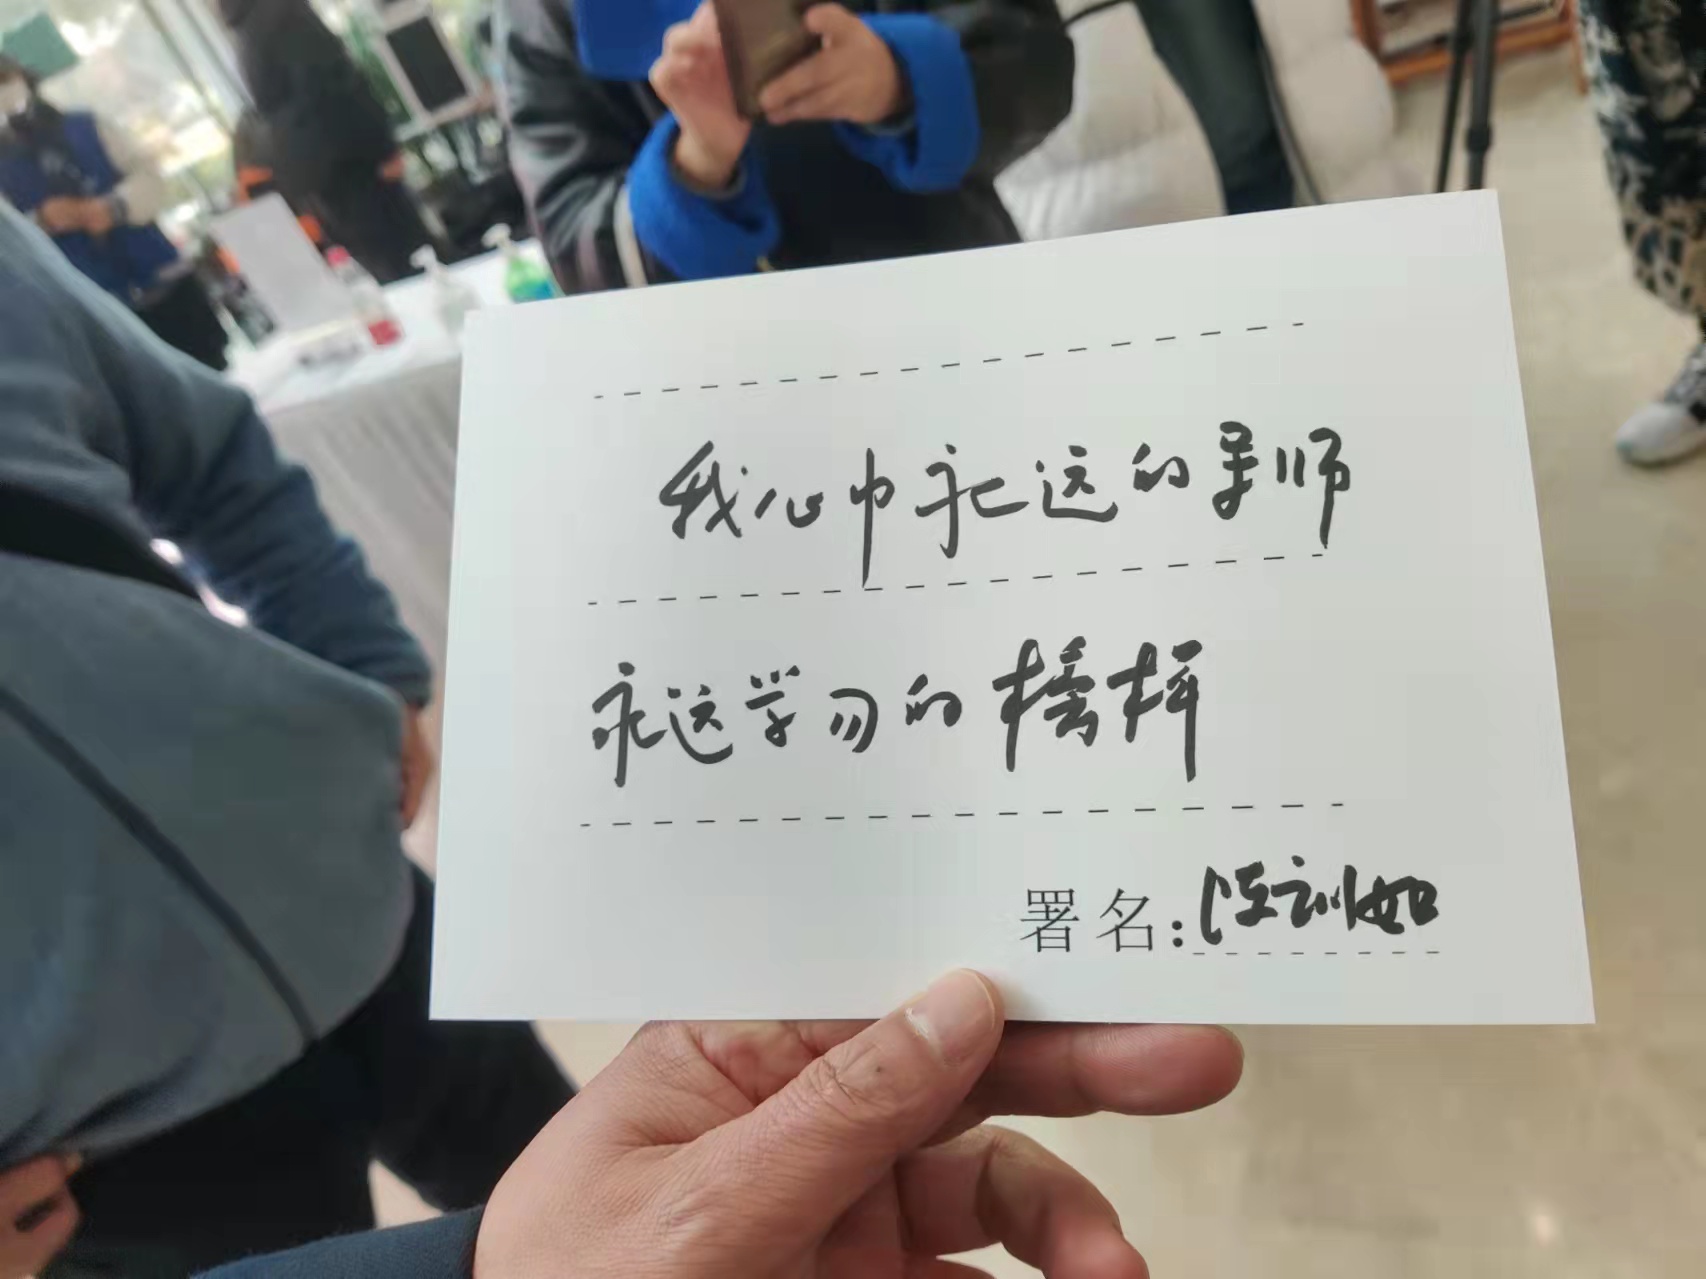 我心中永远的导师
永远学习的榜样
署名:汪训如